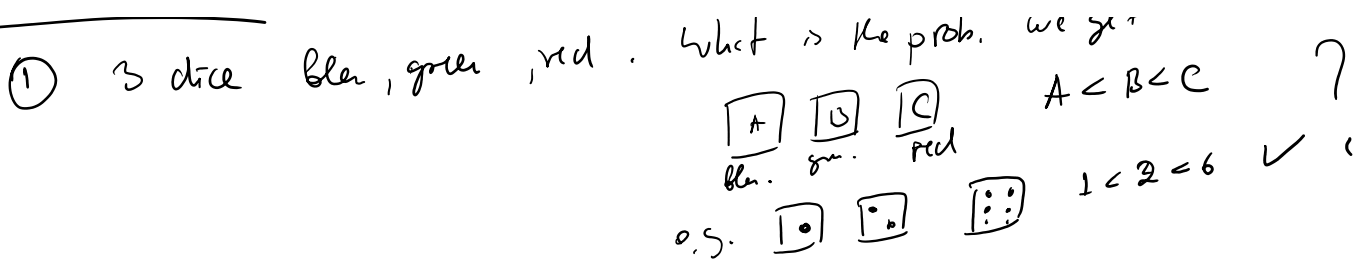 ① 3 dice blue, green, red. What is the prob. we get
A B C A < B < C ?
blu. gre. red
e.g. 1 < 2 < 6 ✓